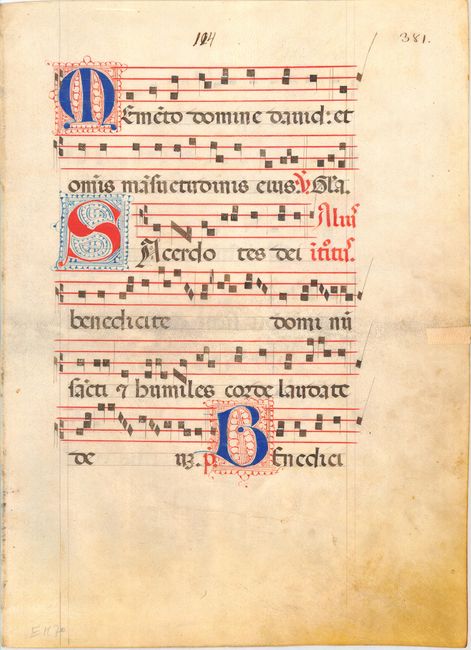 114 381.
Mem̄to domine dauid: et
omīs māsuetudinis eius. ℣ Gl̄a.
Alius
Sacerdo tes dei itr̄itꝰ.
benedicite domi nū
sāncti ⁊ humiles corde laudate
de uꝫ. p̄. Benedici
E 1170